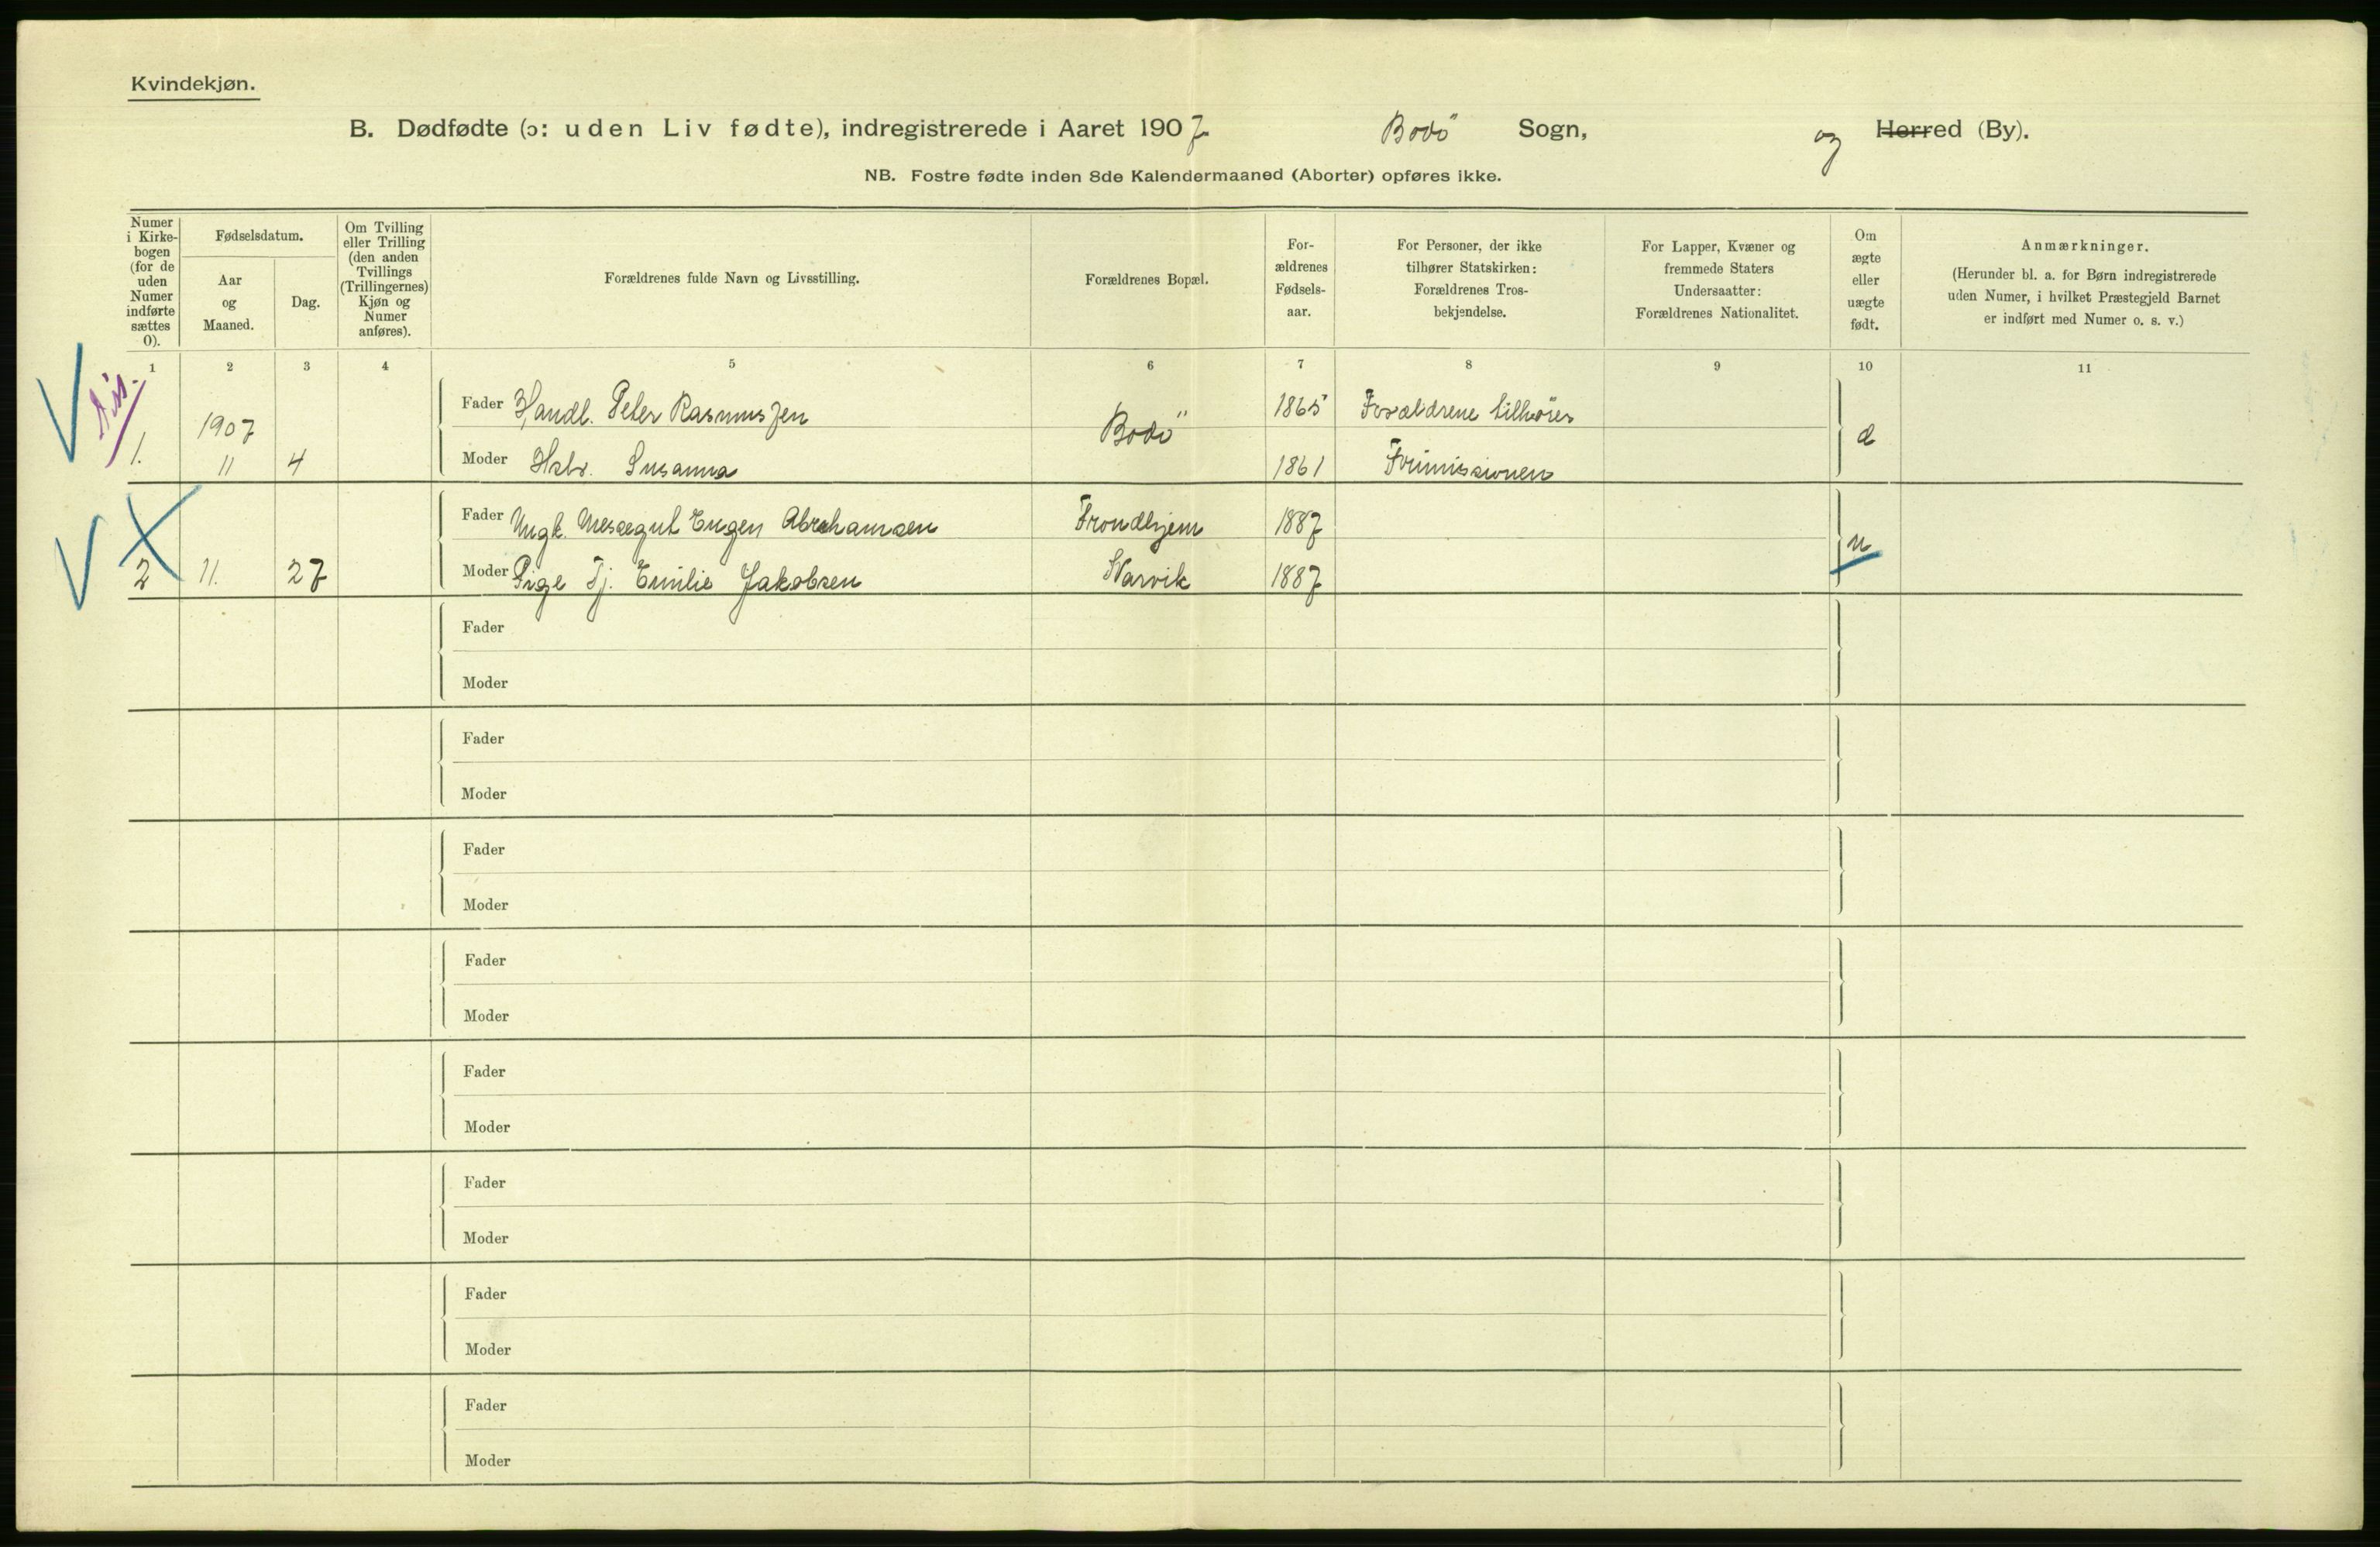 Kvindekjøn.
B. Dødfødte (ɔ: uden Liv fødte), indregistrerede i Aaret 1907 Bodö Sogn, og Herred (By).
NB. Fostre fødte inden 8de Kalendermaaned (Aborter) opføres ikke.
Numer i Kirke-bogen (for de uden Numer indførte sættes 0).
Fødselsdatum.
Aar og Maaned.
Dag.
Om Tvilling eller Trilling (den anden Tvillings (Trillingernes) Kjøn og Numer anføres).
Forældrenes fulde Navn og Livsstilling.
Forældrenes Bopæl.
For-ældrenes Fødsels-aar.
For Personer, der ikke tilhører Statskirken: Forældrenes Tros-bekjendelse.
For Lapper, Kvæner og fremmede Staters Undersaatter: Forældrenes Nationalitet.
Om ægte eller uægte født.
Anmærkninger.
(Herunder bl. a. for Børn indregistrerede uden Numer, i hvilket Præstegjeld Barnet er indført med Numer o. s. v.)
1 2 3 4 5 6 7 8 9 10 11
Diss.
1. 1907 11 4
Fader Handl. Peter Rasmussen Bodö 1865 Forældrene tilhører
Moder Hstr. Susanna 1861 Frimissionen
Fader Ungk. Messegut Eugen Abrahamsen Trondhjem 1887 u
2 11. 27 Moder Pige Tj. Emilie Jakobsen Narvik 1887
Fader
Moder
Fader
Moder
Fader
Moder
Fader
Moder
Fader
Moder
Fader
Moder
Fader
Moder
Fader
Moder